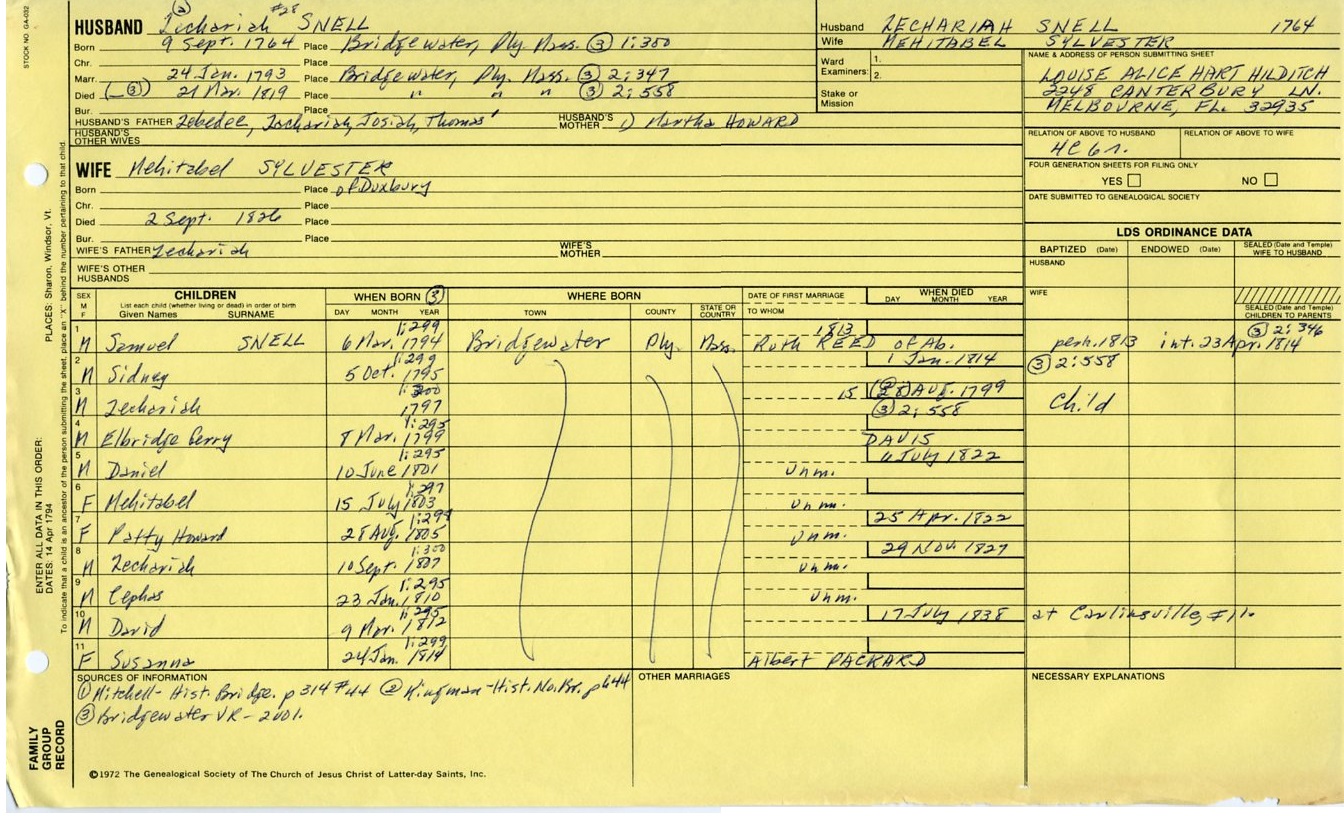 STOCK NO. GA-032
② #28
HUSBAND Zechariah SNELL
Born 9 Sept. 1764 Place Bridgewater, Ply. Mass. ③ 1:300
Chr. Place
Marr. 24 Jan. 1793 Place Bridgewater, Ply. Mass. ③ 2:347
Died (③) 21 Mar. 1819 Place " " " ③ 2:558
Bur. Place
HUSBAND'S FATHER Zebedee, Zachariah, Josiah, Thomas' HUSBAND'S MOTHER 1) Martha HOWARD
HUSBAND'S OTHER WIVES
WIFE Mehitabel SYLVESTER
Born Place of Duxbury
Chr. Place
Died 2 Sept. 1826 Place
Bur. Place
WIFE'S FATHER Zechariah WIFE'S MOTHER
WIFE'S OTHER HUSBANDS
Husband ZECHARIAH SNELL 1764
Wife MEHITABEL SYLVESTER
Ward Examiners: 1.
2.
Stake or Mission
NAME & ADDRESS OF PERSON SUBMITTING SHEET
LOUISE ALICE HART HILDITCH
2248 CANTERBURY LN.
MELBOURNE, FL. 32935
RELATION OF ABOVE TO HUSBAND RELATION OF ABOVE TO WIFE
FOUR GENERATION SHEETS FOR FILING ONLY
YES NO
DATE SUBMITTED TO GENEALOGICAL SOCIETY
LDS ORDINANCE DATA
BAPTIZED (Date) ENDOWED (Date) SEALED (Date and Temple) WIFE TO HUSBAND
HUSBAND
WIFE
SEALED (Date and Temple) CHILDREN TO PARENTS
SEX M F CHILDREN List each child (whether living or dead) in order of birth Given Names SURNAME WHEN BORN ③ DAY MONTH YEAR WHERE BORN TOWN COUNTY STATE OR COUNTRY DATE OF FIRST MARRIAGE TO WHOM WHEN DIED DAY MONTH YEAR
1 1:299 1813 ③ 2:346
M Samuel SNELL 6 Mar. 1794 Bridgewater Ply. Mass. Ruth REED of Ab. perh. 1813 int. 23 Apr. 1814
2 1:299 1 Jan. 1814 ③ 2:558
M Sidney 5 Oct. 1795
3 1:300 15 (28) AUG. 1799
M Zechariah 1797 ③ 2:558 Child
4 1:295
M Elbridge Gerry 8 Mar. 1799 DAVIS
5 1:295 July 1822
M Daniel 10 June 1801 Unm.
6 1:297
F Mehitabel 15 July 1803 Unm.
7 1:299 25 Apr. 1822
F Patty Howard 28 Aug. 1805 Unm.
8 1:300 29 Nov. 1827
M Zechariah 10 Sept. 1807 Unm.
9 1:295
M Cephas 23 Jan. 1810 Unm.
10 1:295 17 July 1838 at Carlinsville, Ill.
M David 9 Mar. 1812
11 1:299
F Susanna 24 Jan. 1814 Albert PACKARD
SOURCES OF INFORMATION
① Mitchell - Hist. Bridge. p 314 #44 ② Kingman - Hist. No. Br. p 644
③ Bridgewater VR - 2001.
OTHER MARRIAGES
NECESSARY EXPLANATIONS
©1972 The Genealogical Society of The Church of Jesus Christ of Latter-day Saints, Inc.
FAMILY GROUP RECORD
ENTER ALL DATA IN THIS ORDER:
DATES: 14 Apr 1794
PLACES: Sharon, Windsor, Vt.
To indicate that a child is an ancestor of the person submitting the sheet, place an "X" behind the number pertaining to that child.